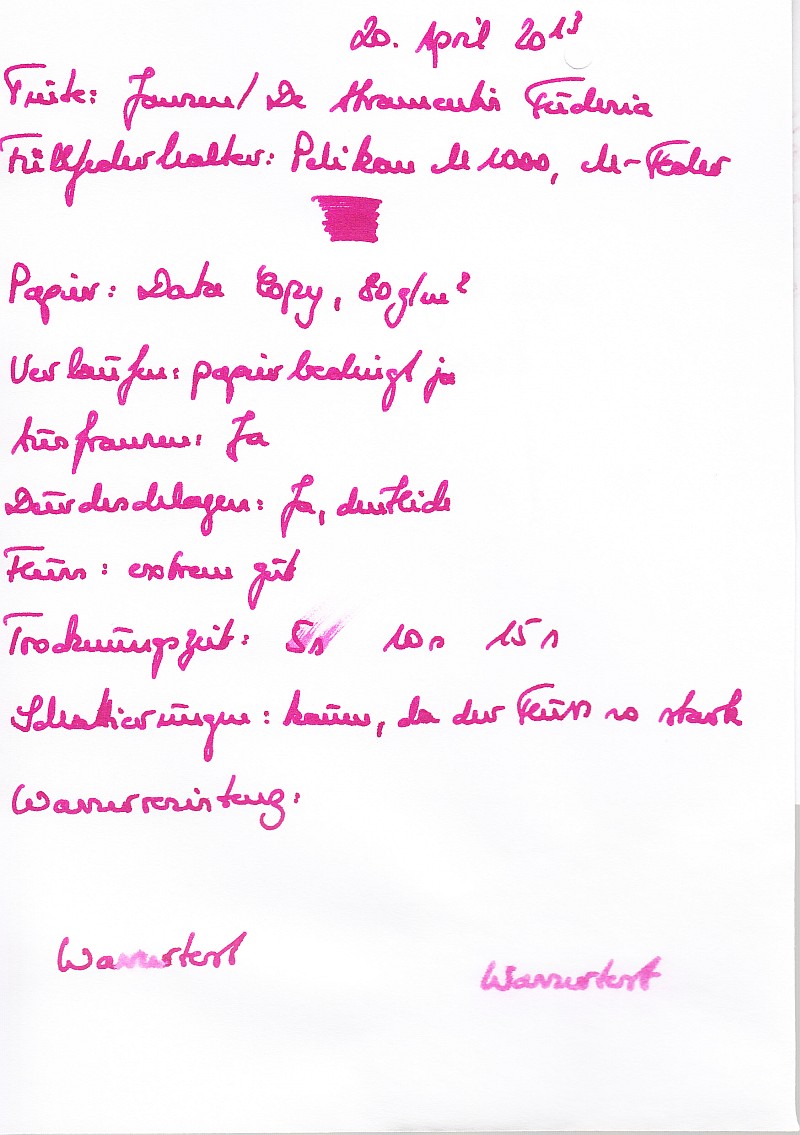 20. April 2013
Tinte: Jansen/ De Atramentis Fuchsia
Füllfederhalter: Pelikan M 1000, M-Feder
Papier: Data Copy, 80g/m²
Verlaufen: papierbedingt ja
Ausfransen: Ja
Durchschlagen: Ja, deutlich
Fluss: extrem gut
Trocknungszeit: 5s 10s 15s
Schattierungen: kaum, da der Fluss so stark
Wasserresistenz:
Wassertest Wassertest